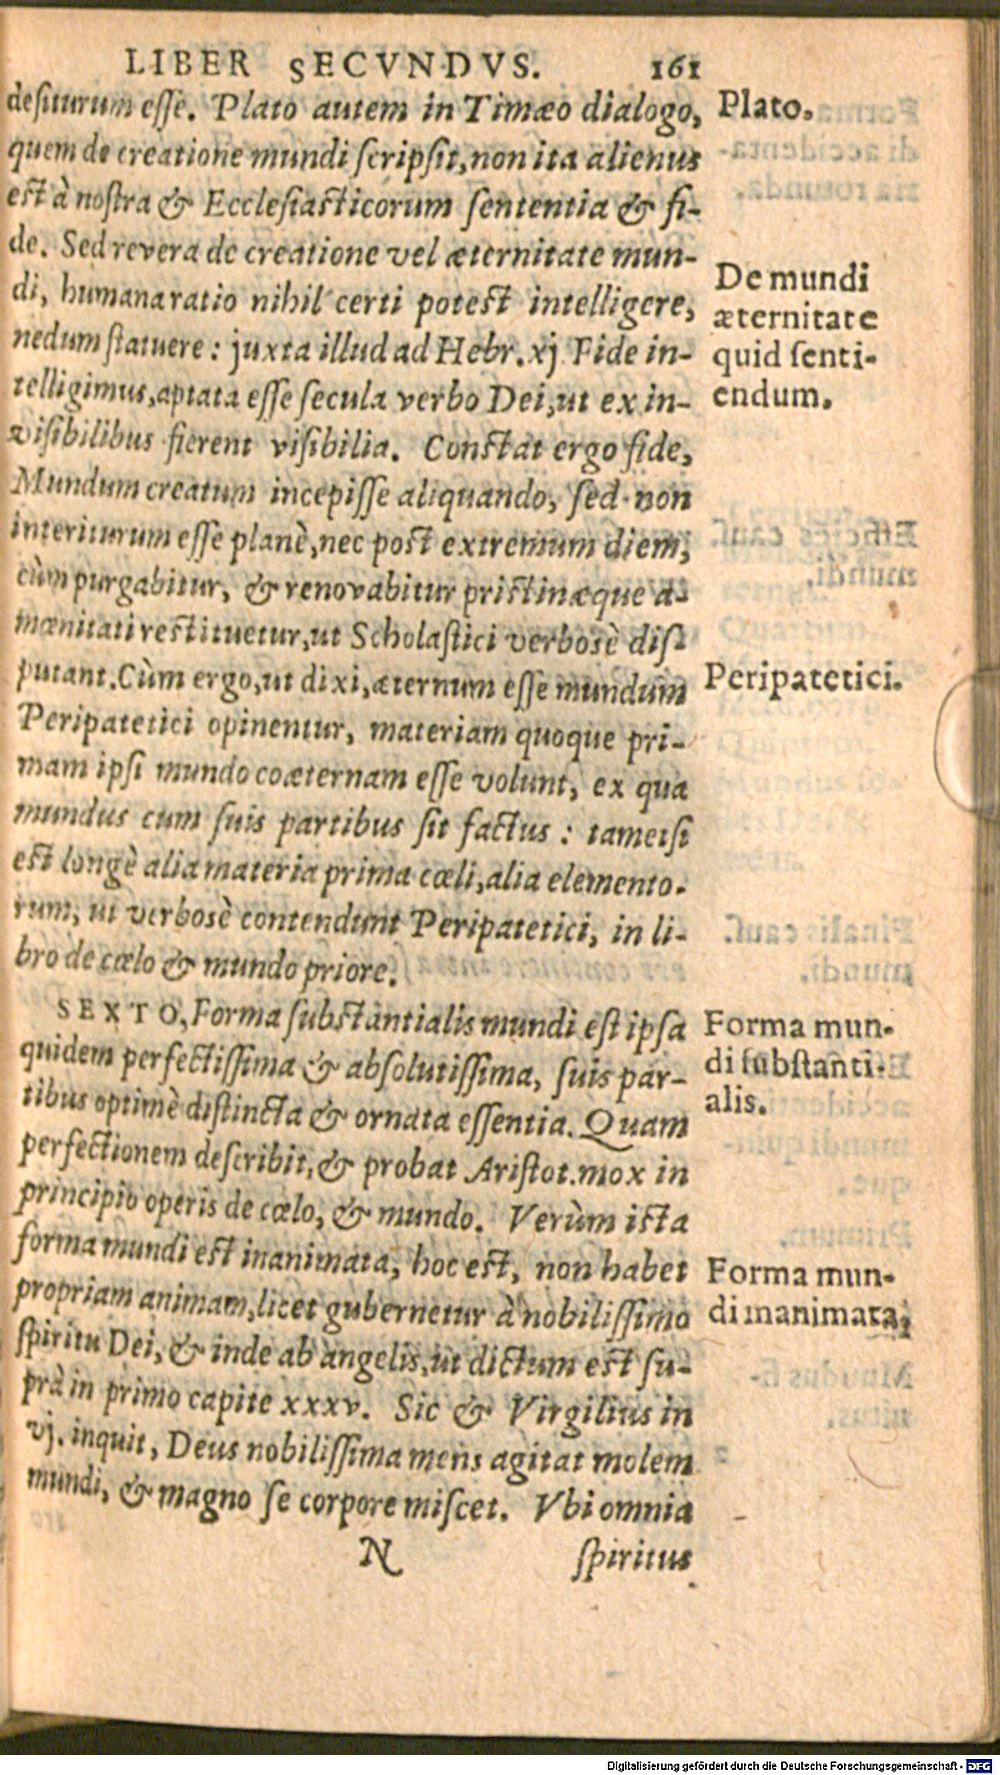 LIBER SECVNDVS. 161
desiturum esse. Plato autem in Timæo dialogo,
quem de creatione mundi scripsit, non ita alienus
est à nostra & Ecclesiasticorum sententia & fi-
de. Sed revera de creatione vel æternitate mun-
di, humana ratio nihil certi potest intelligere,
nedum statuere: juxta illud ad Hebr. xj Fide in-
telligimus, aptata esse secula verbo Dei, ut ex in-
visibilibus fierent visibilia. Constat ergo fide,
Mundum creatum incepisse aliquando, sed non
interiturum esse planè, nec post extremum diem,
cùm purgabitur, & renovabitur pristinæque a-
mœnitati restituetur, ut Scholastici verbosè dis-
putant. Cùm ergo, ut dixi, æternum esse mundum
Peripatetici opinentur, materiam quoque pri-
mam ipsi mundo coæternam esse volunt, ex qua
mundus cum suis partibus sit factus: tametsi
est longè alia materia prima cœli, alia elemento-
rum, ut verbosè contendunt Peripatetici, in li-
bro de cœlo & mundo priore.
SEXTO, Forma substantialis mundi est ipsa
quidem perfectissima & absolutissima, suis par-
tibus optimè distincta & ornata essentia. Quam
perfectionem describit, & probat Aristot. mox in
principio operis de cœlo, & mundo. Verùm ista
forma mundi est inanimata, hoc est, non habet
propriam animam, licet gubernetur à nobilissimo
spiritu Dei, & inde ab angelis, ut dictum est su-
prà in primo capite xxxv. Sic & Virgilius in
vj. inquit, Deus nobilissima mens agitat molem
mundi, & magno se corpore miscet. Vbi omnia
N spiritus
Plato.
De mundi
æternitate
quid senti-
endum.
Peripatetici.
Forma mun-
di substanti-
alis.
Forma mun-
di inanimata,
Digitalisierung gefördert durch die Deutsche Forschungsgemeinschaft - DFG